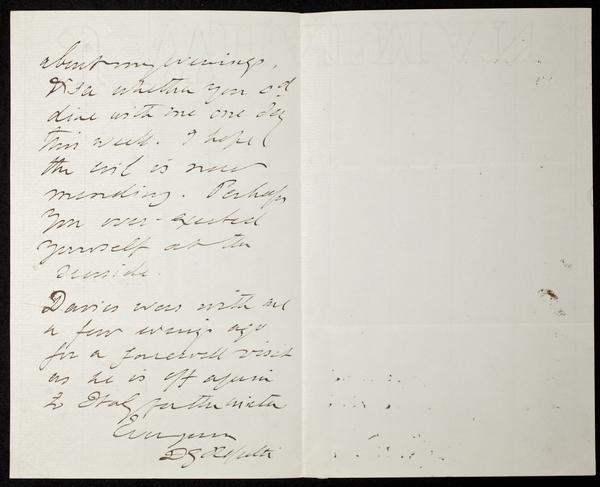 about my evenings,
& see whether you cd
dine with me one day
this week. I hope
the evil is now
mending. Perhaps
you over-exerted
yourself at the
seaside.
Davies was with me
a few evengs ago
for a farewell visit
as he is off again
to Italy for the winter
Ever yours
D G Rossetti